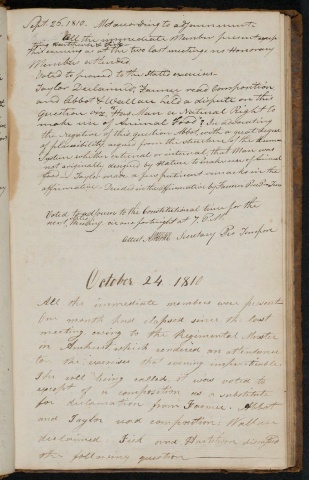 Sept 25. 1810. Met according to adjournment.
All the immediate Members present except
this evening as at the two last meetings no Honorary
Member attended
Voted to proceed to the stated exercises.
Taylor Declaimed, Farmer read Composition
and Abbot & Wallace held a dispute on this
Question viz. "Has Man a Natural Right to
make use of Animal Food"? In debating
the negative of this question Abbot with a great degree
of plausibility argued from the structure of the human
System whether external or internal, that Man was
not originally designed by Nature to make use of Animal
food. Taylor made a few pertinent remarks in the
affirmative. Decided in the affirmative by
Voted to adjourn to the Constitutional time for the
next Meeting viz one fortnight at 7. P.M.
Attest, Secretary Pro Tempore
October 24. 1810
All the immediate members were present
One month had elapsed since the last
meeting owing to the Regimental Muster
in Amherst which rendered an attendance
on the exercises that evening impracticable.
The roll being called, it was voted to
accept of a composition as a substitute
for declamation from Farmer. Abbot
and Taylor read composition. Wallace
declaimed. Fisk and disputed
the following question